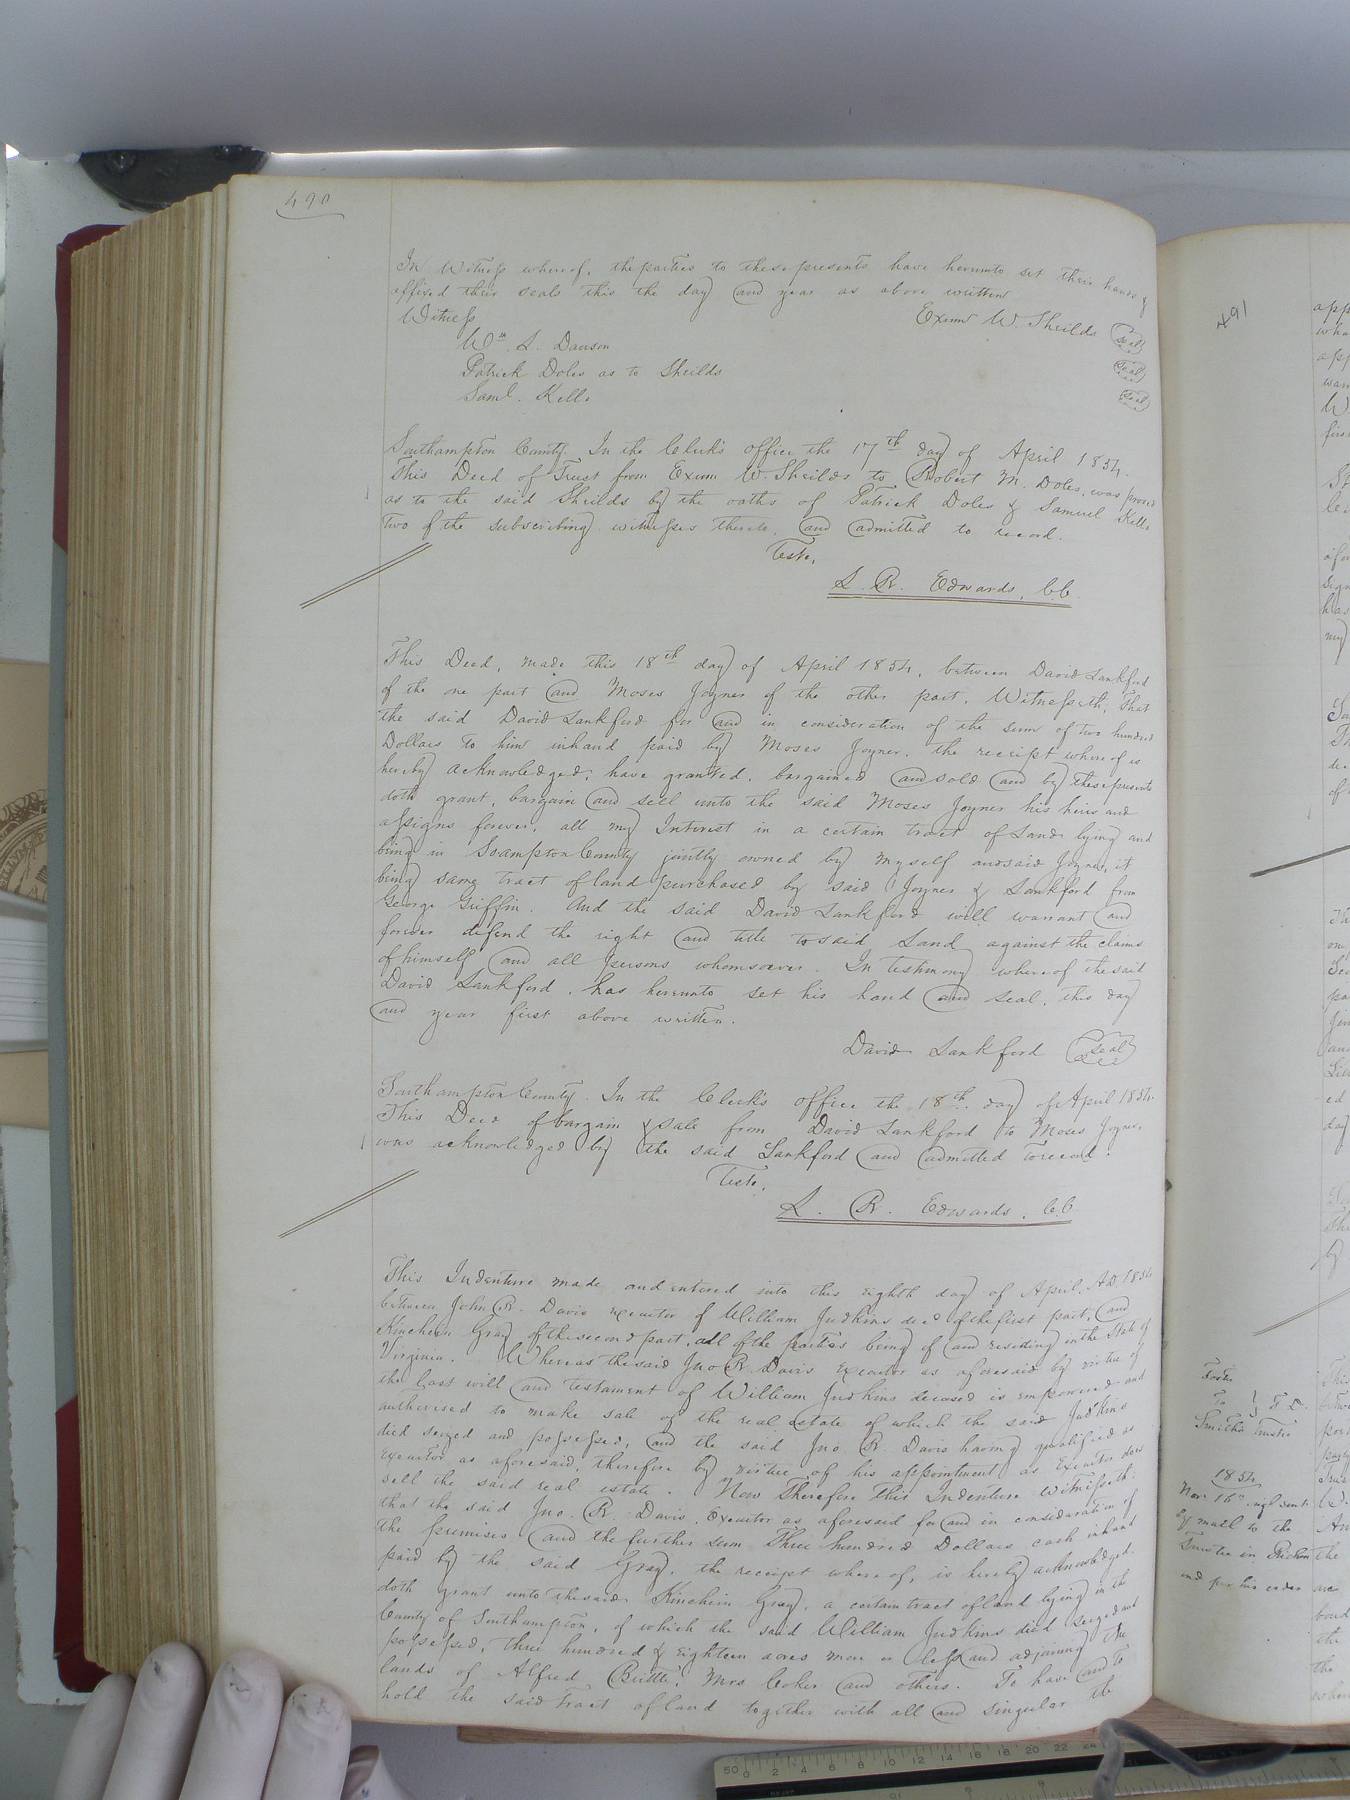 490
In Witness whereof, the parties to these presents have hereunto set their hands &
affixed their seals this the day and year as above written
Witness Exum W. Sheilds Seal
Wm. S. Dawson
Patrick Doles as to Sheilds Seal
Saml. Kello Seal
Southampton County. In the Clerk's office the 17th day of April 1854.
This Deed of Trust from Exum W. Sheilds to Robert M. Doles, was proved
as to the said Sheilds by the oaths of Patrick Doles & Samuel Kello
Two of the subscribing witnesses thereto, and admitted to record.
Teste,
L. R. Edwards, C.C.
This Deed, made this 18th day of April 1854, between David Lankford
of the one part and Moses Joyner of the other part, Witnesseth; That
the said David Lankford for and in consideration of the sum of two hundred
Dollars to him inhand paid by Moses Joyner, the receipt whereof is
hereby acknowledged; have granted, bargained and sold and by these presents
doth grant, bargain and sell unto the said Moses Joyner his heirs and
assigns forever, all my Interest in a certain tract of Land lying and
being in Shampton County jointly owned by myself and said Joyner, it
being same tract of land purchased by said Joyner & Lankford from
George Griffin. And the said David Lankford will warrant and
forever defend the right and title to said Land against the claims
of himself and all persons whomsoever. In testimony whereof the said
David Lankford, has hereunto set his hand and seal, this day
and year first above written.
David Lankford Seal
Southampton County. In the Clerk's office the 18th day of April 1854.
This Deed of bargain & sale from David Lankford to Moses Joyner,
was acknowledged by the said Lankford and admitted to record.
Teste,
L. R. Edwards, C.C.
This Indenture made and entered into this eighth day of April, A.D. 1854
between John R. Davis executor of William Judkins decd of the first part, and
Kinchein Gray of the second part, all of the parties being of and residing in the State of
Virginia. Whereas the said Jno R. Davis executor as aforesaid by virtue of
the last will and testament of William Judkins deceased is empowered and
authorised to make sale of the real estate of which the said Judkins
died seized and possessed, and the said Jno. R. Davis having qualified as
executor as aforesaid, therefore by virtue of his appointment as Executor does
sell the said real estate. Now Therefore This Indenture witnesseth:
that the said Jno. R. Davis, Executor as aforesaid for and in consideration of
the premises and the further sum Three hundred Dollars cash inhand
paid by the said Gray, the receipt whereof, is hereby acknowledged,
doth grant unto the said Kinchein Gray, a certain tract of land lying in the
County of Southampton, of which the said William Judkins died seized and
possessed, three hundred & eighteen acres more or less and adjoining the
lands of Alfred Britte, Mrs Coker and others. To have and to
hold the said tract of land together with all and singular the
491
To
Smith Trustee
T. D.
1854
Nov. 16th
by mail to the
Trustee in
and per his order